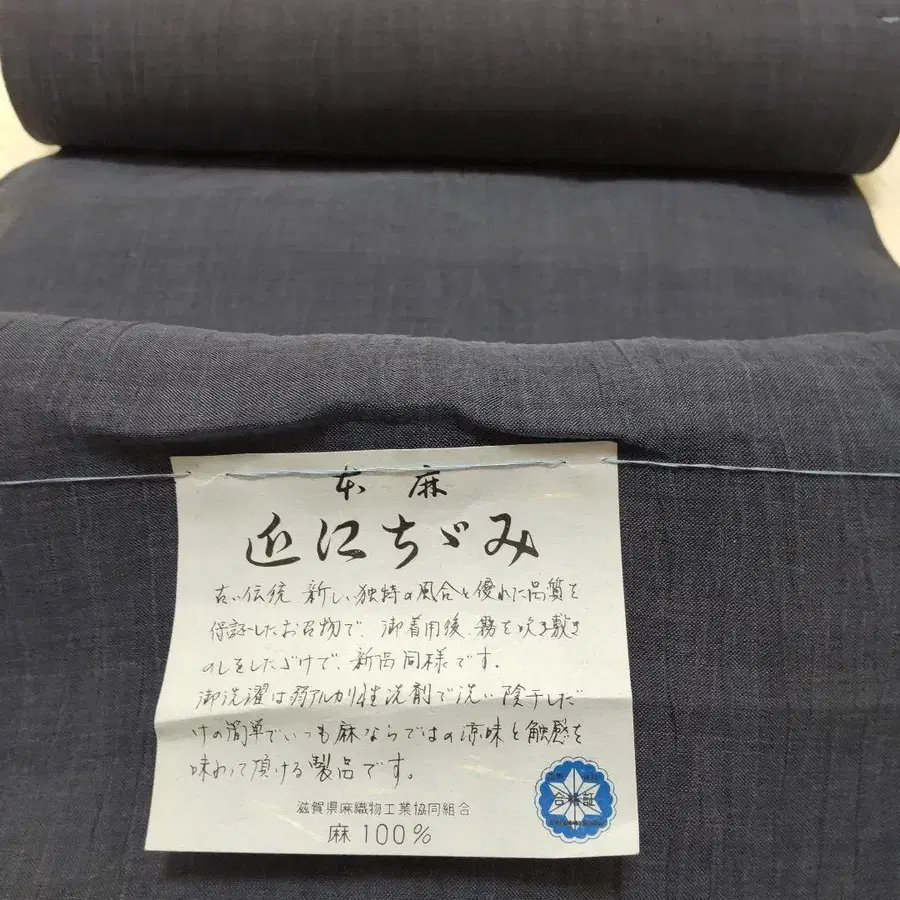 本麻
近江ちゞみ
古い伝統 新しい独特の風合と優れた品質を
保証したお召物で、御着用後、霧を吹き敷き
のしをしただけで、新品同様です。
御洗濯は弱アルカリ性洗剤で洗い陰干しだ
けの簡単でいつも麻ならではの涼味と触感を
味わって頂ける製品です。
滋賀県麻織物工業協同組合
麻 100%
合格証